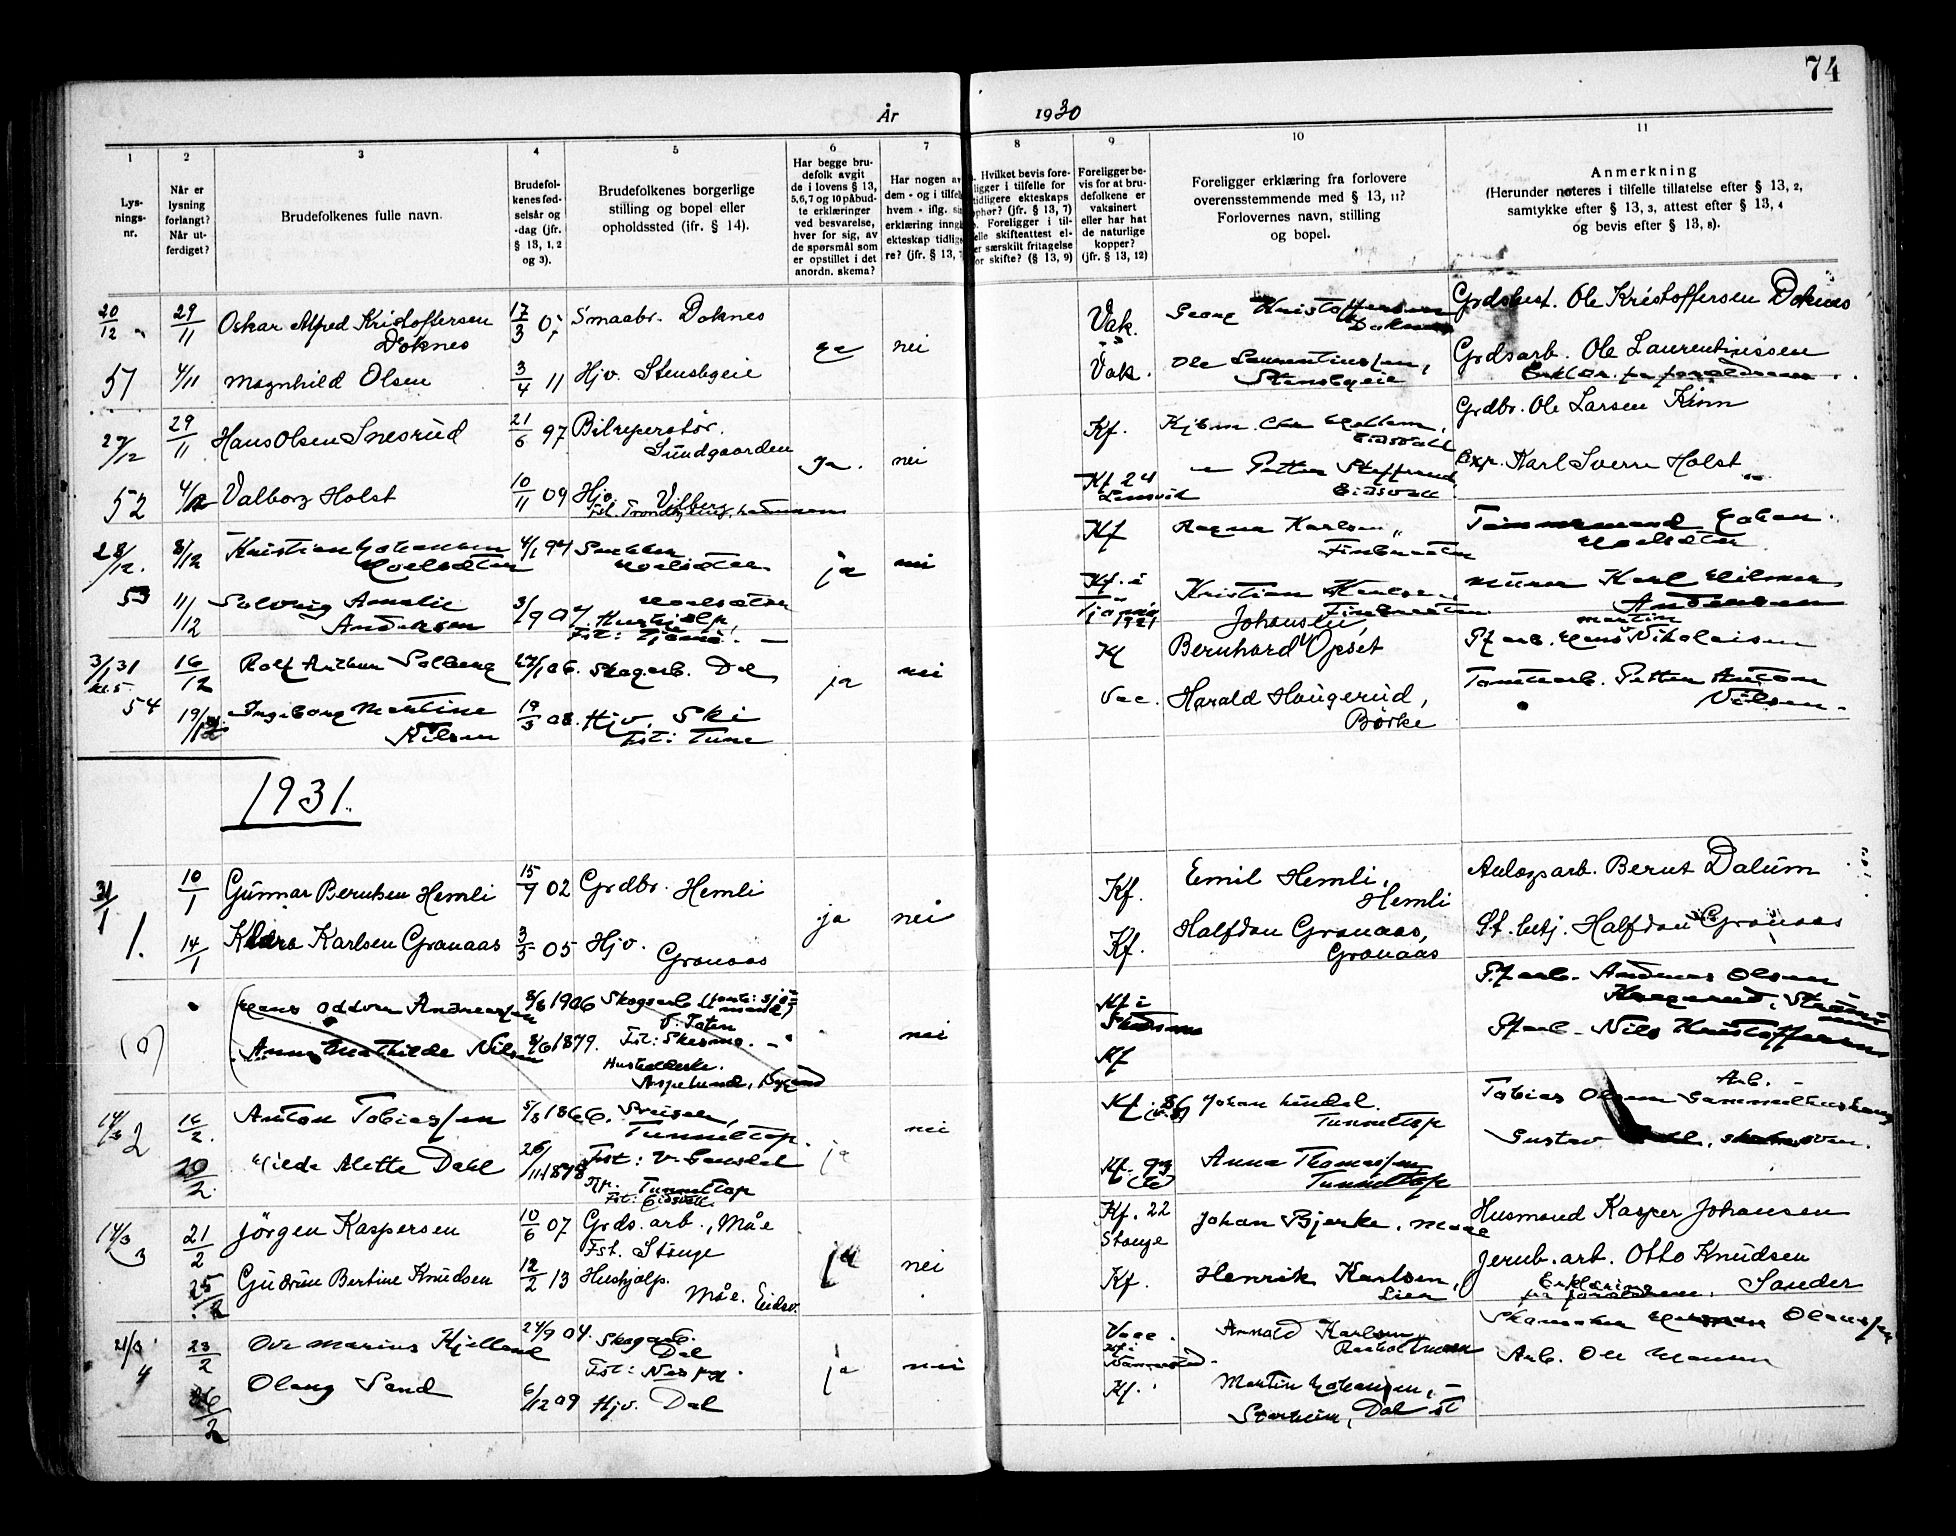 74
År 1930
1 2 3 4 5 6 7 8 9 10 11
Lysnings-nr.
Når er lysning forlangt? Når utferdiget?
Brudefolkenes fulle navn.
Brudefolkenes fødselsår og -dag (jfr. § 13, 1, 2 og 3).
Brudefolkenes borgerlige stilling og bopel eller opholdssted (ifr. § 14).
Har begge brudefolk avgit de i lovens § 13, 5,6,7 og 10 påbudte erklæringer ved besvarelse, hver for sig, av de spørsmål som er opstillet i det anordn. skema?
Har nogen av
dem - og i tilfel
hvem - iflg. si
erklæring inng
ekteskap tidlig
re? (jfr. § 13,
Hvilket bevis fore-
ligger i tilfelle for
tidligere ekteskaps
ophør? (jfr. § 13, 7)
Foreligger i til-
elle skifteattest el-
er særskilt fritagelse
or skifte? (§ 13, 9)
Foreligger bevis for at brudefolkene er vaksinert eller har hat de naturlige kopper? (jfr. § 13, 12)
Foreligger erklæring fra forlovere overensstemmende med § 13, 11? Forlovernes navn, stilling og bopel.
Anmerkning
(Herunder noteres i tilfelle tillatelse efter § 13, 2, samtykke efter § 13, 3, attest efter § 13, 4 og bevis efter § 13, 8).
20/12 29/11 Oskar Alfred Kristoffersen Doknes 17/3 07 Smaabr. Doknes ja nei Vak. Georg Kristoffersen Doknes Grdsbest. Ole Kristoffersen Doknes
51 4/11 Magnhild Olsen 3/4 11 Hjv. Stensbyeie Vak. Ole Laurentiussen, Stensbyeie Grdsarb. Ole Laurentiussen
Erklær. fra forældrene.
27/12 29/11 Hans Olsen Snesrud 21/6 97 Bilreperatør. Sundgaarden ja. nei Kf. Eidsvoll Grdbr. Ole Larsen
52 4/12 Valborg Holst 10/11 09 Hjv. Vilberg Kf 24 Petter Eidsvoll Exp. Karl Sverre Holst
28/12. 8/12 Kristian Johansen 4/1 94 Snekker ja nei Kf Ragna Karlsen Johan
53 11/12 Solveig Amalie Andersen 3/9 07 Hushjelp, Fst: Tjømø. Kf. i Tjømø 1921 Kristian Karlsen Murer Karl Hilmar Andersen
3/1 31 kl 5. 16/12 Rolf Arthur Solberg 27/1 06. Skogarb. Dal ja nei Kf Johansen, Bernhard Opset Pf arb. Hans Martin Nikolaisen
54 19/12 Ingeborg Martine Nilsen 19/3 08. Hjv. Ski Fst: Tune Vac. Harald Haugerud, Børke Tomtearb. Petter Anton Nilsen.
1931.
31/1 10/1 Gunnar Berntsen Hemli 15/7 02 Grdbr. Hemli ja nei Kf. Emil Hemli, Hemli Anlægsarb. Bernt Dalum
1. 14/1 Klara Karlsen Granaas 3/5 05 Hjv. Granaas Kf. Halfdan Granaas, Granaas St. betj. Halfdan Granaas
(0) Hans Oddvar Andreassen 8/8 1906 Skogsarb. V. Toten Fst: Skedsmo. nei Kf i Skedsmo Pf arb. Andreas Olsen
Anna Mathilde Nilsen 8/6 1879. Husholderske. Kf Pf arb. Nils Kristoffersen
14/3 2 16/2. Anton Tobiassen 5/8 1866. Tunneltop. ja nei Kf. 86 Johan Lindal. Tunneltop Arb. Tobias Olsen
20/2. Hilda Alette Dahl 26/11 1878 Tunneltop Fst: Eidsvoll Kf. 93 Anna Thomassen Tunneltop Gustav Dahl,
14/3 3 21/2 Jørgen Kaspersen 10/6 07 Grds. arb., Måe Fst. Stange ja nei Kf. 22 Stange Johan Bjerke. Maae Husmand Kasper Johansen
25/2 Gudrun Bertine Knudsen 12/2 13 Hushjelp. Måe. Eidsv. Kf. Henrik Karlsen, Lien Jernb. arb. Otto Knudsen Sander
Erklæring fra forældrene.
21/3 4 23/2 Ove Marius Kjelland 24/9 04. Skogarb. Dal Fst: Nes pr. ja nei Vacc. Kf i Arnold Karlsen Skomaker
26/2 Olaug Sand 6/12 09 Hjv. Dal Kf. Martin Johansen, Dal st Arb. Ole Hansen